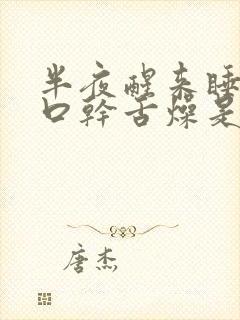 半夜醒来睡
口幹舌燥是
唐杰